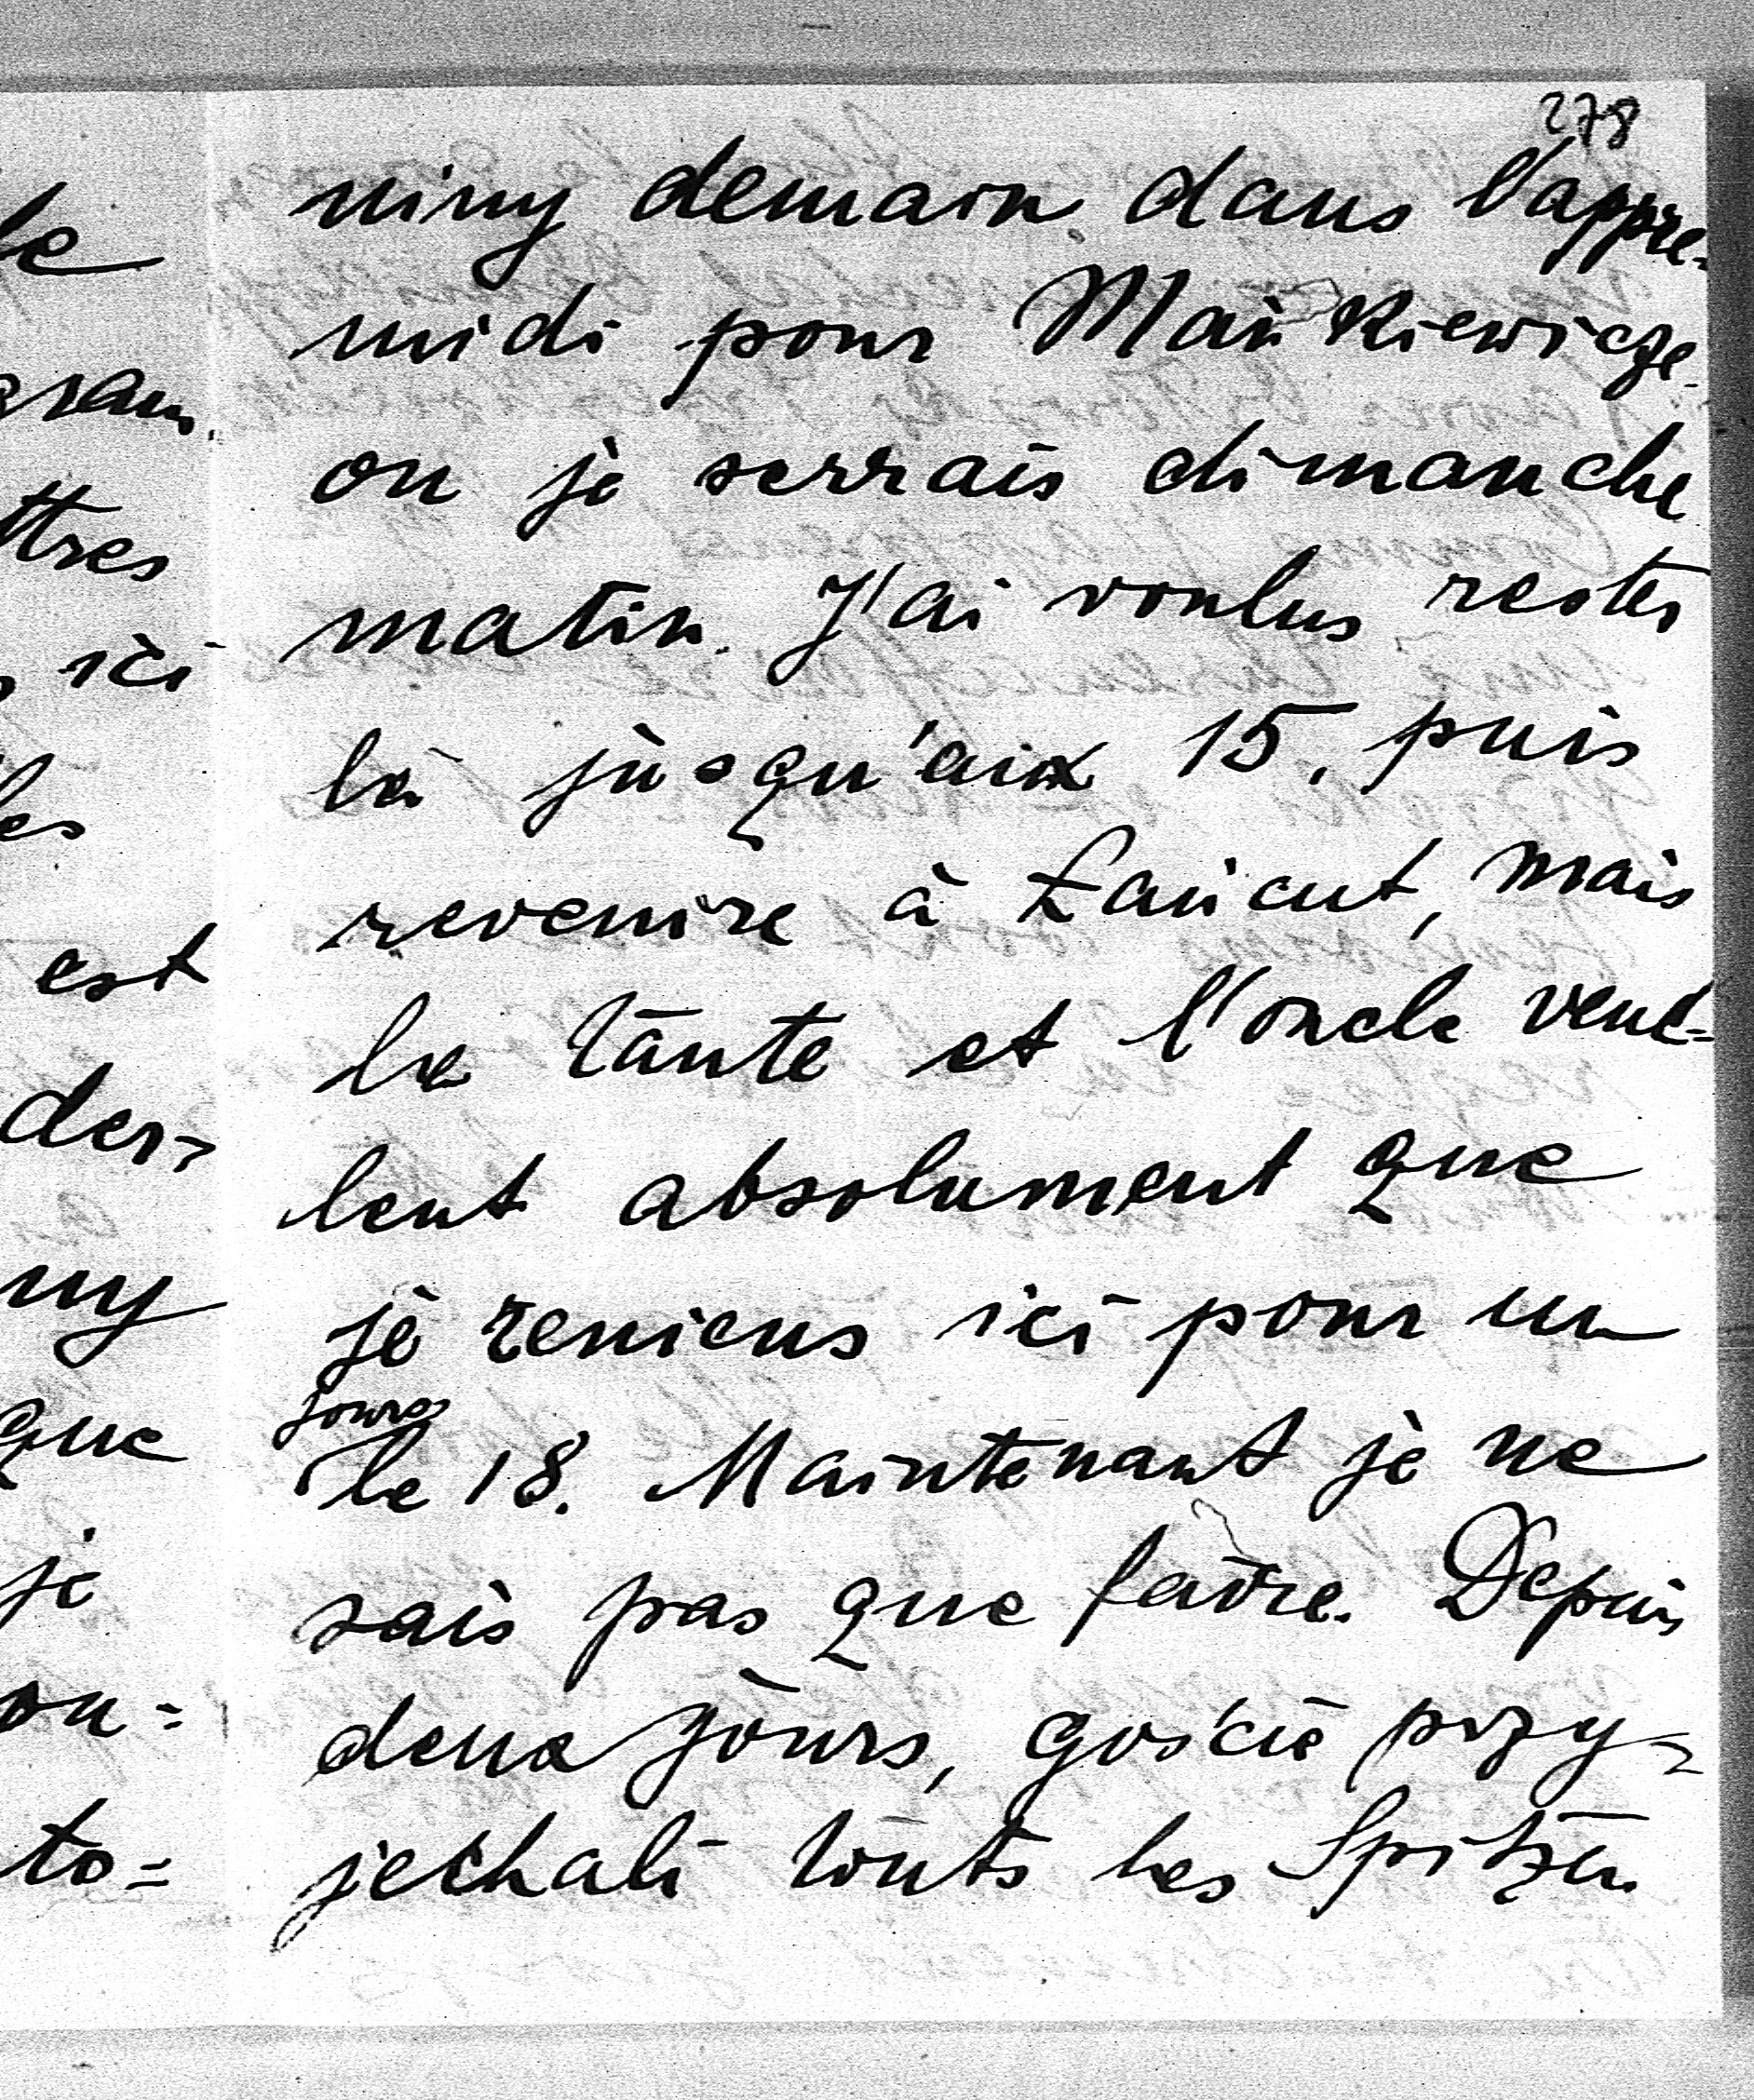 278
niny demain dans l'appre-
midi pour Mańkiewicze
ou je serrais dimanche
matin. J'ai voulus rester
là jusqu'aix 15, puis
revenire à Łańcut, mais
la tante et l'oncle veul=
lent absolument que
je reniens ici pour un
jours
le 18. Maintenant je ne
sais pas que faire. Depuis
deux jours, goście przy=
jechali touts les Spitzen
le
ttres
ici
les
est
der=
ny
que
je
ou=
to=